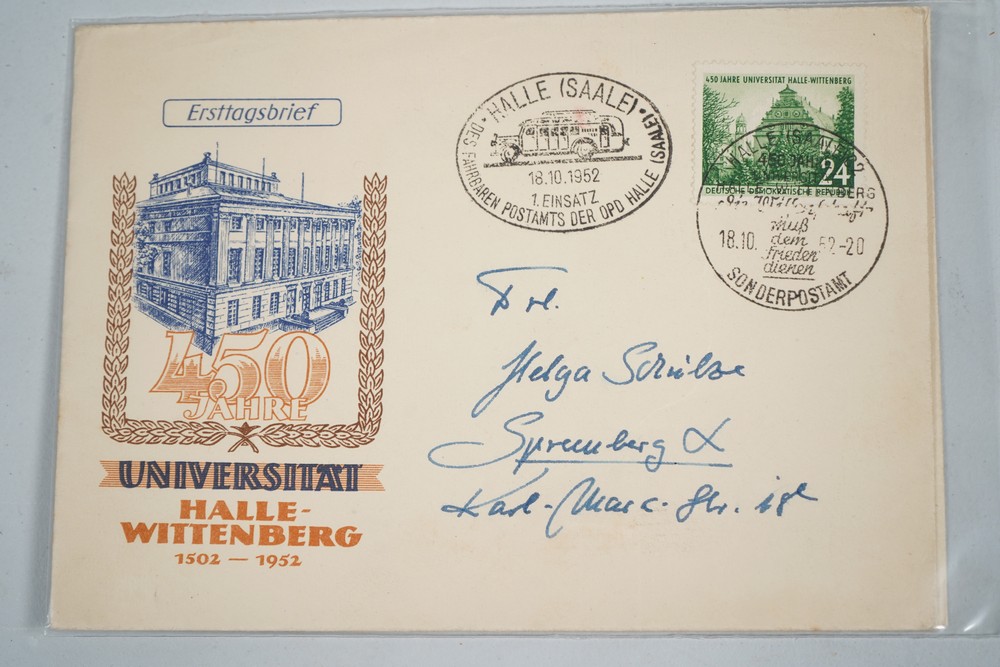 Ersttagsbrief
450
JAHRE
UNIVERSITÄT
HALLE-
WITTENBERG
1502 — 1952
• HALLE (SAALE) •
18.10.1952
1. EINSATZ
DES FAHRBAREN POSTAMTS DER OPD HALLE (SAALE)
450 JAHRE UNIVERSITÄT HALLE-WITTENBERG
24
DEUTSCHE DEMOKRATISCHE REPUBLIK
HALLE (SAALE) 2
muß
18.10. dem 52-20
Frieden
dienen
SONDERPOSTAMT
Frl.
Helga Schulze
Spremberg
Karl-Marx-Str.